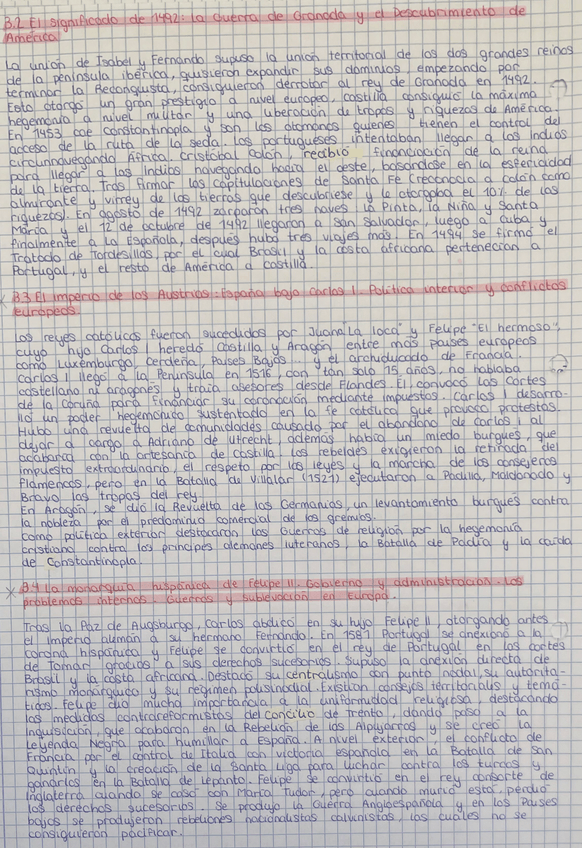 3.2 El significado de 1492: la Guerra de Granada y el Descubrimiento de
América
La unión de Isabel y Fernando supuso la unión territorial de los dos grandes reinos
de la península ibérica, quisieron expandir sus dominios, empezando por
terminar la Reconquista, consiguieron derrotar al rey de Granada en 1492.
Esto otorgó un gran prestigio a nivel europeo, castilla consiguió la máxima
hegemonía a nivel militar y una liberación de tropas y riquezas de América.
En 1453 cae constantinopla y son los otomanos quienes tienen el control del
acceso de la ruta de la seda. Los portugueses intentaban llegar a las Indias
circunnavegando África. Cristóbal Colón, recibió financiación de la reina
para llegar a las Indias navegando hacia el oeste, basandose en la esfericidad
de la tierra. Tras firmar las capitulaciones de Santa Fe (reconocia a colón como
almirante y virrey de las tierras que descubriese y le otorgaba el 10% de las
riquezas). En agosto de 1492 zarparon tres naves: La Pinta, la Niña y Santa
María y el 12 de octubre de 1492 llegaron a San Salvador, luego a Cuba y
finalmente a La Española, después hubo tres viajes más. En 1494 se firmó el
Tratado de Tordesillas, por el cual Brasil y la costa africana pertenecían a
Portugal, y el resto de América a castilla.
3.3 El imperio de los Austrias: España bajo Carlos I. Política interior y conflictos
europeos
Los reyes católicos fueron sucedidos por Juana "La loca" y Felipe "El hermoso",
cuyo hijo Carlos I heredó Castilla y Aragón entre más países europeos
como Luxemburgo, Cerdeña, Países Bajos... y el archiducado de Francia.
Carlos I llegó a la Península en 1516, con tan solo 15 años, no hablaba
castellano ni aragonés y traía asesores desde Flandes. Él convocó las Cortes
de la Coruña para financiar su coronación mediante impuestos. Carlos I desarro-
lló un poder hegemónico sustentado en la fe católica que provocó protestas.
Hubo una revuelta de comunidades causado por el abandono de Carlos I al
dejar a cargo a Adriano de Utrecht, además había un miedo burgués, que
acabaría con la artesanía de Castilla. Los rebeldes exigieron la retirada del
impuesto extraordinario, el respeto por las leyes y la marcha de los consejeros
flamencos, pero en la Batalla de Villalar (1521) ejecutaron a Padilla, Maldonado y
Bravo las tropas del rey.
En Aragón, se dió la Revuelta de las Germanías, un levantamiento burgués contra
la nobleza por el predominio comercial de los gremios.
Como política exterior destacaron las Guerras de religión por la hegemonía
cristiana contra los príncipes alemanes luteranos, la Batalla de Padía y la caída
de Constantinopla.
3.4 La monarquía hispánica de Felipe II. Gobierno y administración. Los
problemas internos. Guerras y sublevación en Europa.
Tras la Paz de Augsburgo, Carlos abdicó en su hijo Felipe II, otorgando antes
el imperio alemán a su hermano Fernando. En 1581 Portugal se anexionó a la
corona hispánica y Felipe se convirtió en el rey de Portugal en las cortes
de Tomar gracias a sus derechos sucesorios. Supuso la anexión directa de
Brasil y la costa africana. Destacó su centralismo con punto nodal, su autorita-
rismo monárquico y su régimen polisinodial. Existían consejos territoriales y temá-
ticos. Felipe dió mucha importancia a la uniformidad religiosa destacando
las medidas contrareformistas del concilio de Trento, dando paso a la
Inquisición, que acabaron en la Rebelión de las Alpujarras y se creó la
Leyenda Negra para humillar a España. A nivel exterior, el conflicto de
Francia por el control de Italia con victoria española en la Batalla de San
Quintín y la creación de la Santa Liga para luchar contra los turcos y
ganarlos en la Batalla de Lepanto. Felipe se convirtió en el rey consorte de
Inglaterra cuando se casó con María Tudor, pero cuando murió esta, perdió
los derechos sucesorios. Se produjo la Guerra Angloespañola y en los Países
bajos se produjeron rebeliones nacionalistas calvinistas, las cuales no se
consiguieron pacificar.